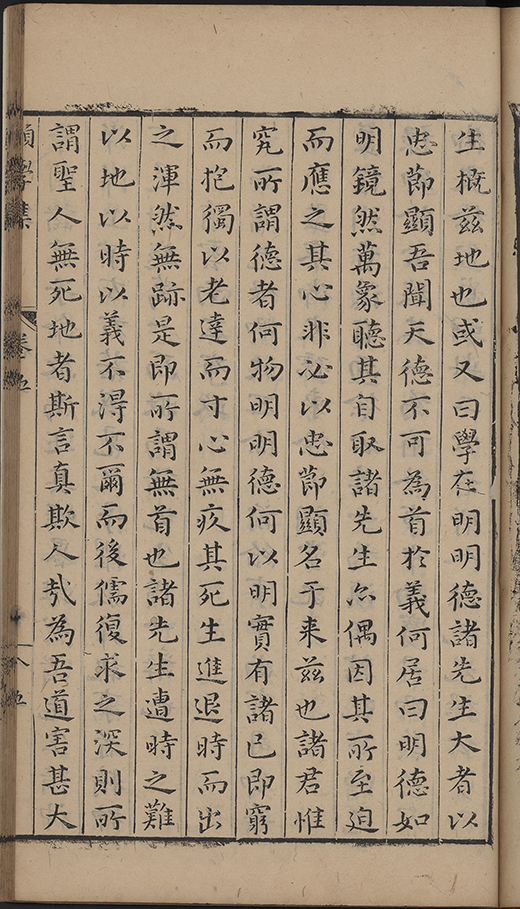 生概茲地也或又曰學在明明德諸先生大者以
忠節顯吾聞天德不可為首於義何居曰明德如
明鏡然萬象聽其自取諸先生亦偶因其所至迫
而應之其心非必以忠節顯名于来茲也諸君惟
究所謂德者何物明明德何以明實有諸已即窮
而抱獨以老達而寸心無疚其死生進退時而出
之渾然無跡是即所謂無首也諸先生遭時之難
以地以時以義不得不爾而後儒復求之深則所
謂聖人無死地者斯言真欺人㢤為吾道害甚大
學集
卷五
八五